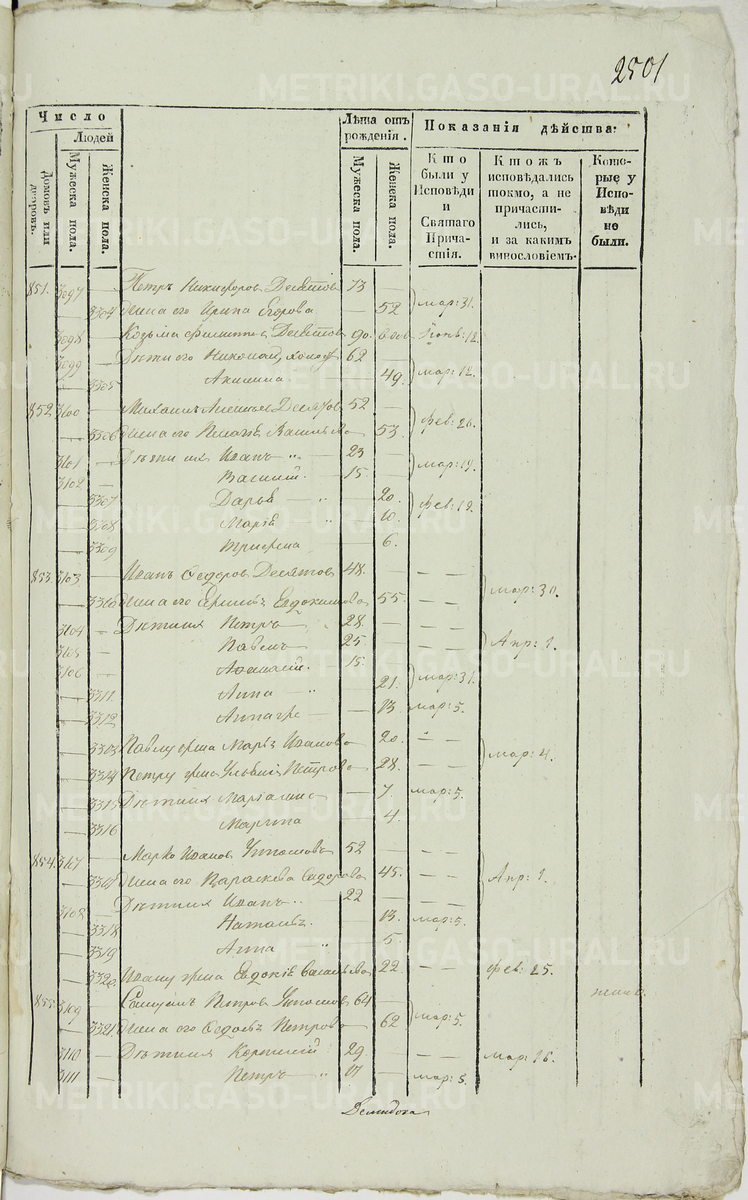 2501
Число
Людей
Домовъ или дворовъ.
Мужеска пола.
Женска пола.
Лѣта отъ рожденія.
Мужеска пола.
Женска пола.
Показанія дѣйства:
Кто были у Исповѣди и Святаго Причастія.
Ктожъ исповѣдались токмо, а не причастились, и за какимъ винословіемъ.
Которые у Исповѣди не были.
851. 3097 — Петръ Никифоровъ Десятовъ 73 —
— 3304 Жена его Ирина Егорова — 52 мар: 31.
3098 — Козьма Филиппов Десятовъ 90. вдов Генв: 12.
3099 — Дѣти его Николай, холост 62 —
— 3305 Акилина — 49. мар: 12.
852. 3100 — Михаилъ Десятовъ 52 —
— 3306 Жена его Пелагія Васильева — 53. фев: 26.
3101 — Дѣти ихъ Иванъ 23 —
3102 — Василій 15 — мар: 19.
— 3307 Дарья — 20.
— 3308 Марія — 10. фев: 19.
— 3309 — 6.
853. 3103 — Иванъ Ѳедоров Десятов 48. — — —
— 3310 Жена его Евдокимова — 55. — — мар: 30.
3104 — Дѣти ихъ Петръ 28. — — —
3105 — Павелъ 25. — — — Апр: 1.
3106 — Аѳанасій. 15. —
— 3311 Анна — 21. мар: 31.
— 3312 — 13 мар: 5.
— 3313 Павлу жена Марья Иванова — 20. — —
— 3314 Петру жена Петрова — 28. — — мар: 4.
— 3315 Дѣти ихъ — 7. мар: 5.
— 3316 Марина — 4.
854. 3107 — Марко Иванов 52 — — —
— 3317 Жена его Параскева Сидорова — 45. — — Апр: 1.
3108 — Дѣти ихъ Иванъ 22 —
— 3318 Наталья — 13. мар: 5.
— 3319 Анна — 5.
— 3320 Ивану жена Евдокія Васильева — 22. — — фев: 25.
855. 3109 — Петров 64 —
— 3321 Жена его Петрова — 62 мар: 5.
3110 — Дѣти ихъ 29 — — — мар: 16.
3111 — Петръ 17 — мар: 5.
METRIKI.GASO-URAL.RU